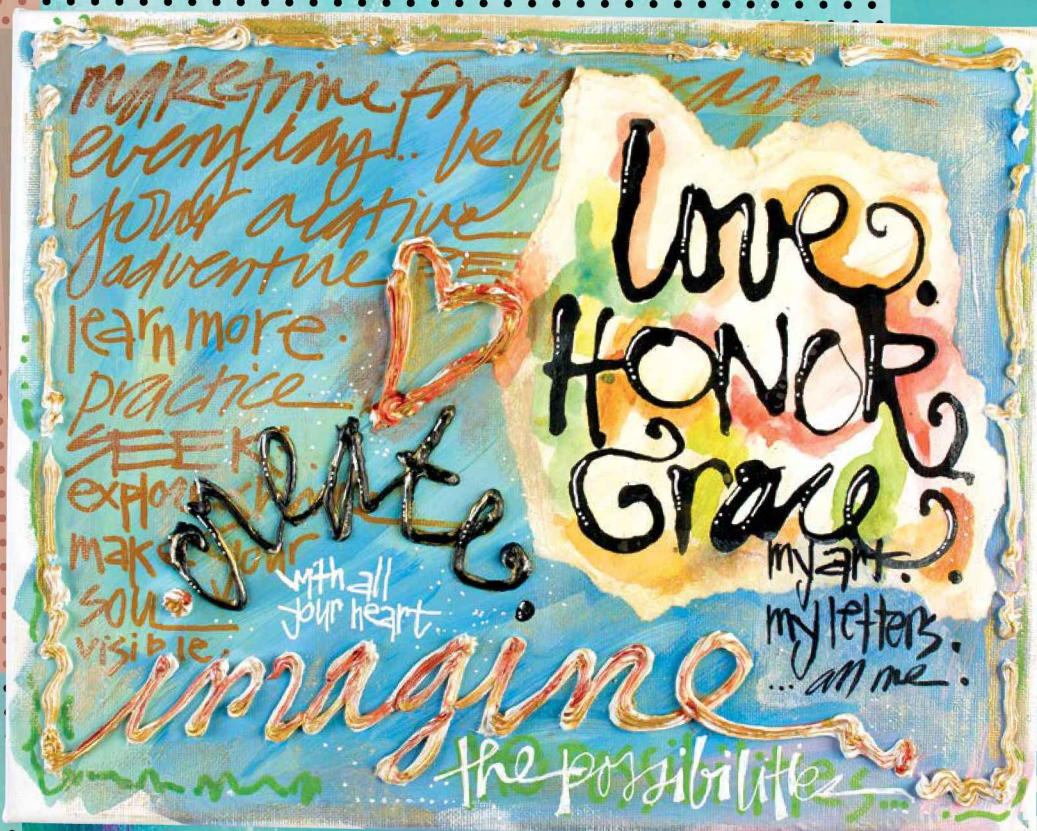 make time for
every day..
your creative
adventure
learn more.
practice
SEEK.
make your
soul
visible.
create.
with all
your heart
Love.
HONOR
Grace.
my art..
my letters.
...all me.
imagine
the possibilities...